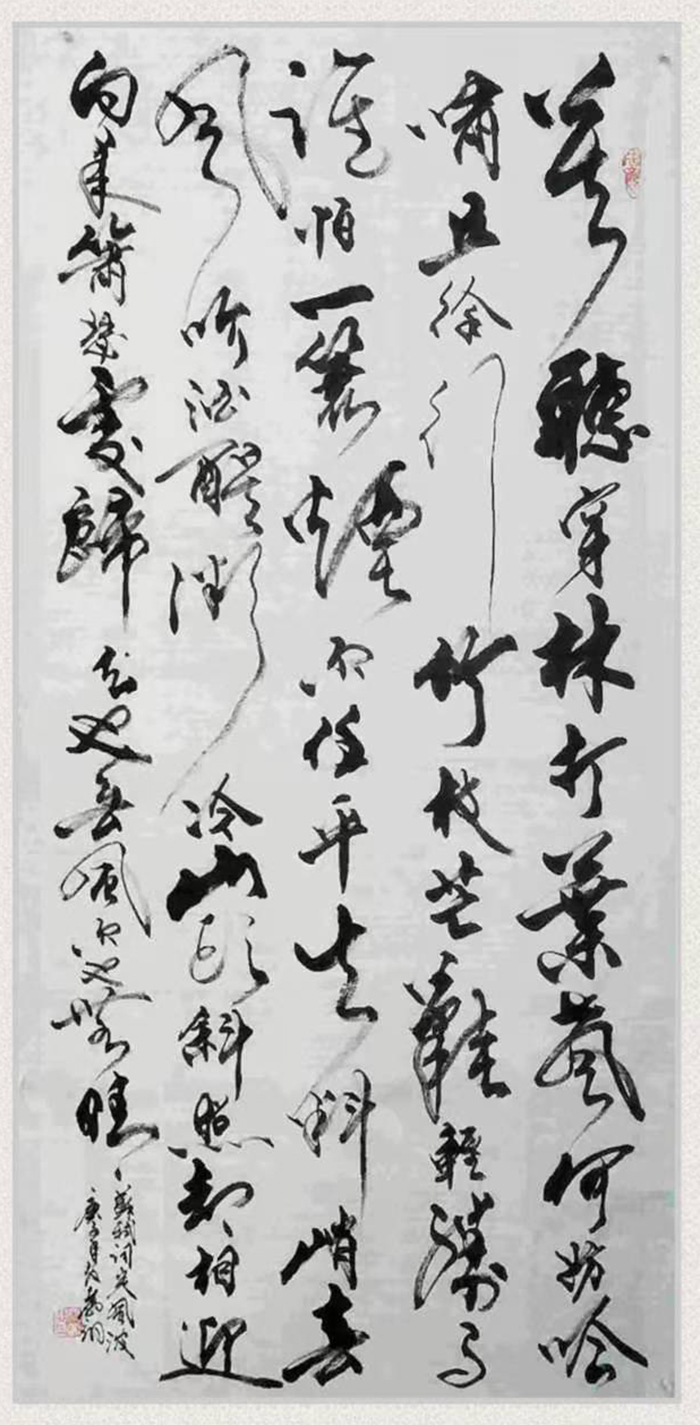 莫聽穿林打葉聲何妨吟
嘯且徐行竹杖芒鞋輕勝馬
誰怕一蓑煙雨任平生料峭春
風吹酒醒微冷山頭斜照却相迎
向來蕭瑟處歸去也無風雨也無晴
蘇軾詞定風波